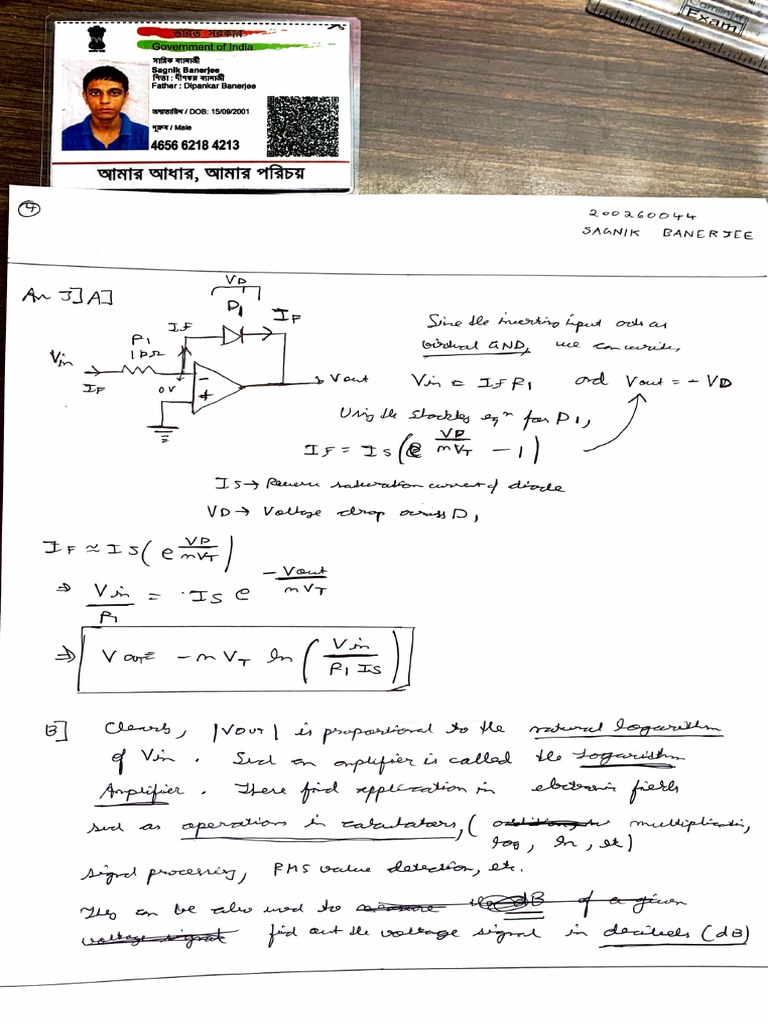 ভারত সরকার
Government of India
সাগ্নিক ব্যানার্জী
Sagnik Banerjee
পিতা : দীপঙ্কর ব্যানার্জী
Father : Dipankar Banerjee
জন্মতারিখ / DOB: 15/09/2001
পুরুষ / Male
4656 6218 4213
আমার আধার, আমার পরিচয়
Exam
4
200260044
SAGNIK BANERJEE
An 3]A]
VD
D1
IF
IF
R1
1kΩ
Vin
IF
0V
-
+
Vout
Since the inverting input acts as
virtual GND, we can write,
Vin = IF R1 and Vout = - VD
Using the Stockley eqn for D1,
IF = IS (e^(VD/mVT) - 1)
IS → Reverse saturation current of diode
VD → Voltage drop across D1
IF ≈ IS (e^(VD/mVT))
⇒ Vin/R1 = IS e^(-Vout/mVT)
⇒ Vout = -mVT ln (Vin/R1 IS)
B] Clearly, |Vout| is proportional to the natural logarithm
of Vin. Such an amplifier is called the Logarithm
Amplifier. These find application in electronic fields
such as operations in calculators, ( multiplication,
log, ln, etc)
signal processing, RMS value detection, etc.
They can be also used to
find out the voltage signal in decibels (dB)